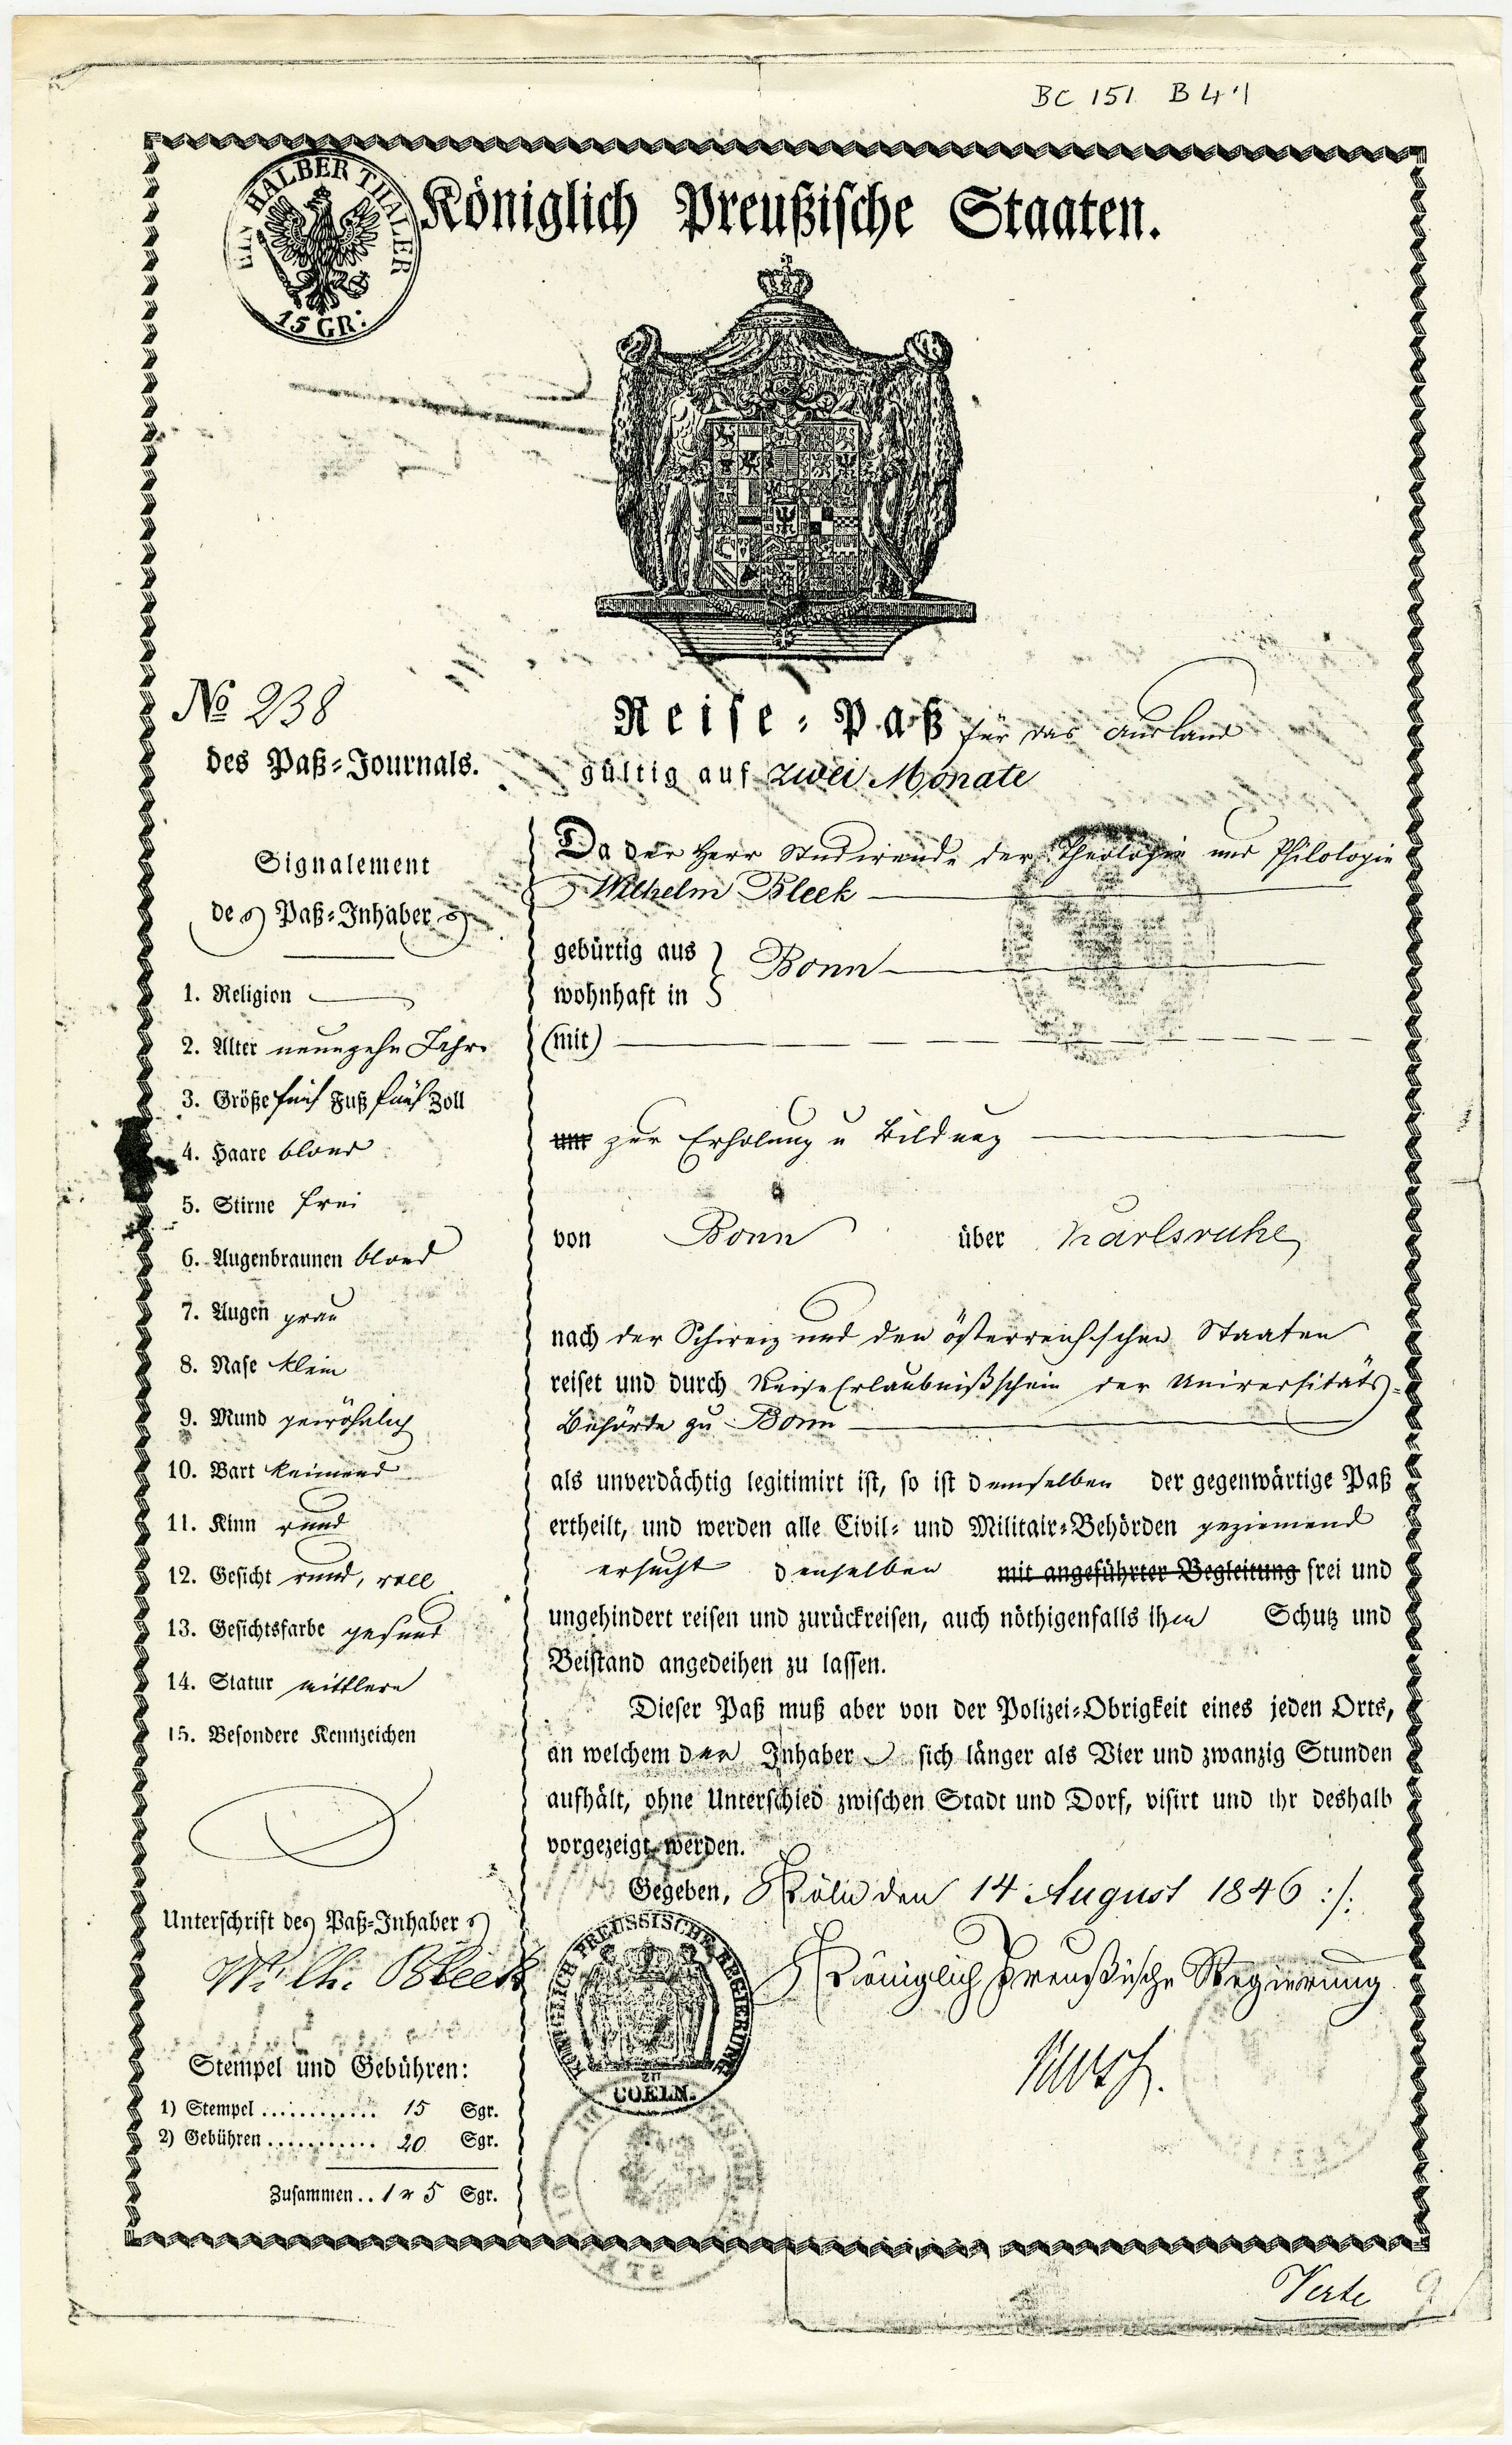 BC 151 B 4.1
EIN HALBER THALER
15 GR:
Königlich Preußische Staaten.
No 238
des Paß-Journals.
Reise-Paß für das Ausland
gültig auf zwei Monate
Signalement
des Paß-Inhabers
1. Religion
2. Alter neunzehn Jahr.
3. Größe fünf Fuß fünf Zoll
4. Haare blond
5. Stirne frei
6. Augenbraunen blond
7. Augen grau
8. Nase klein
9. Mund gewöhnlich
10. Bart keimend
11. Kinn rund
12. Gesicht rund, voll
13. Gesichtsfarbe gesund
14. Statur mittlere
15. Besondere Kennzeichen
Unterschrift des Paß-Inhabers
Wilh. Bleek
Stempel und Gebühren:
1) Stempel ............ 15 Sgr.
2) Gebühren ........... 20 Sgr.
Zusammen .. 1 r 5 Sgr.
Da der Herr Studirende der Theologie und Philologie
Wilhelm Bleek
gebürtig aus } Bonn
wohnhaft in
(mit)
um zur Erholung u Bildung
von Bonn über Karlsruhe
nach der Schweiz und den österreichschen Staaten
reiset und durch ReiseErlaubnißschein der Universitäts-
Behörde zu Bonn
als unverdächtig legitimirt ist, so ist demselben der gegenwärtige Paß
ertheilt, und werden alle Civil- und Militair-Behörden geziemend
ersucht denselben mit angeführter Begleitung frei und
ungehindert reisen und zurückreisen, auch nöthigenfalls ihm Schutz und
Beistand angedeihen zu lassen.
Dieser Paß muß aber von der Polizei-Obrigkeit eines jeden Orts,
an welchem der Inhaber sich länger als Vier und zwanzig Stunden
aufhält, ohne Unterschied zwischen Stadt und Dorf, visirt und ihr deshalb
vorgezeigt werden.
Gegeben, Köln den 14 August 1846 :/:
Königlich Preußische Regierung.
KÖNIGLICH PREUSSISCHE REGIERUNG
ZU
COELN.
Verte